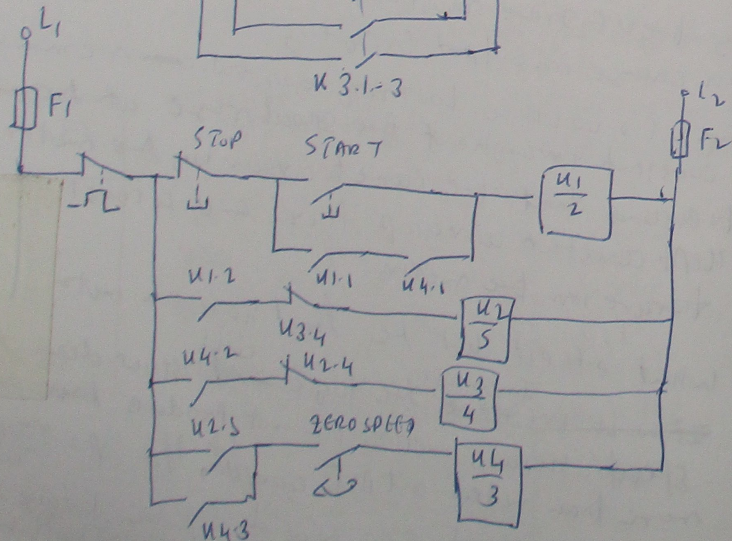 K 3.1-3
L1
F1
L2
F2
STOP
START
K1
2
K1.1
K4.1
K1.2
K3.4
K2
5
K4.2
K2.4
K3
4
K2.5
ZERO SPEED
K4
3
K4.3